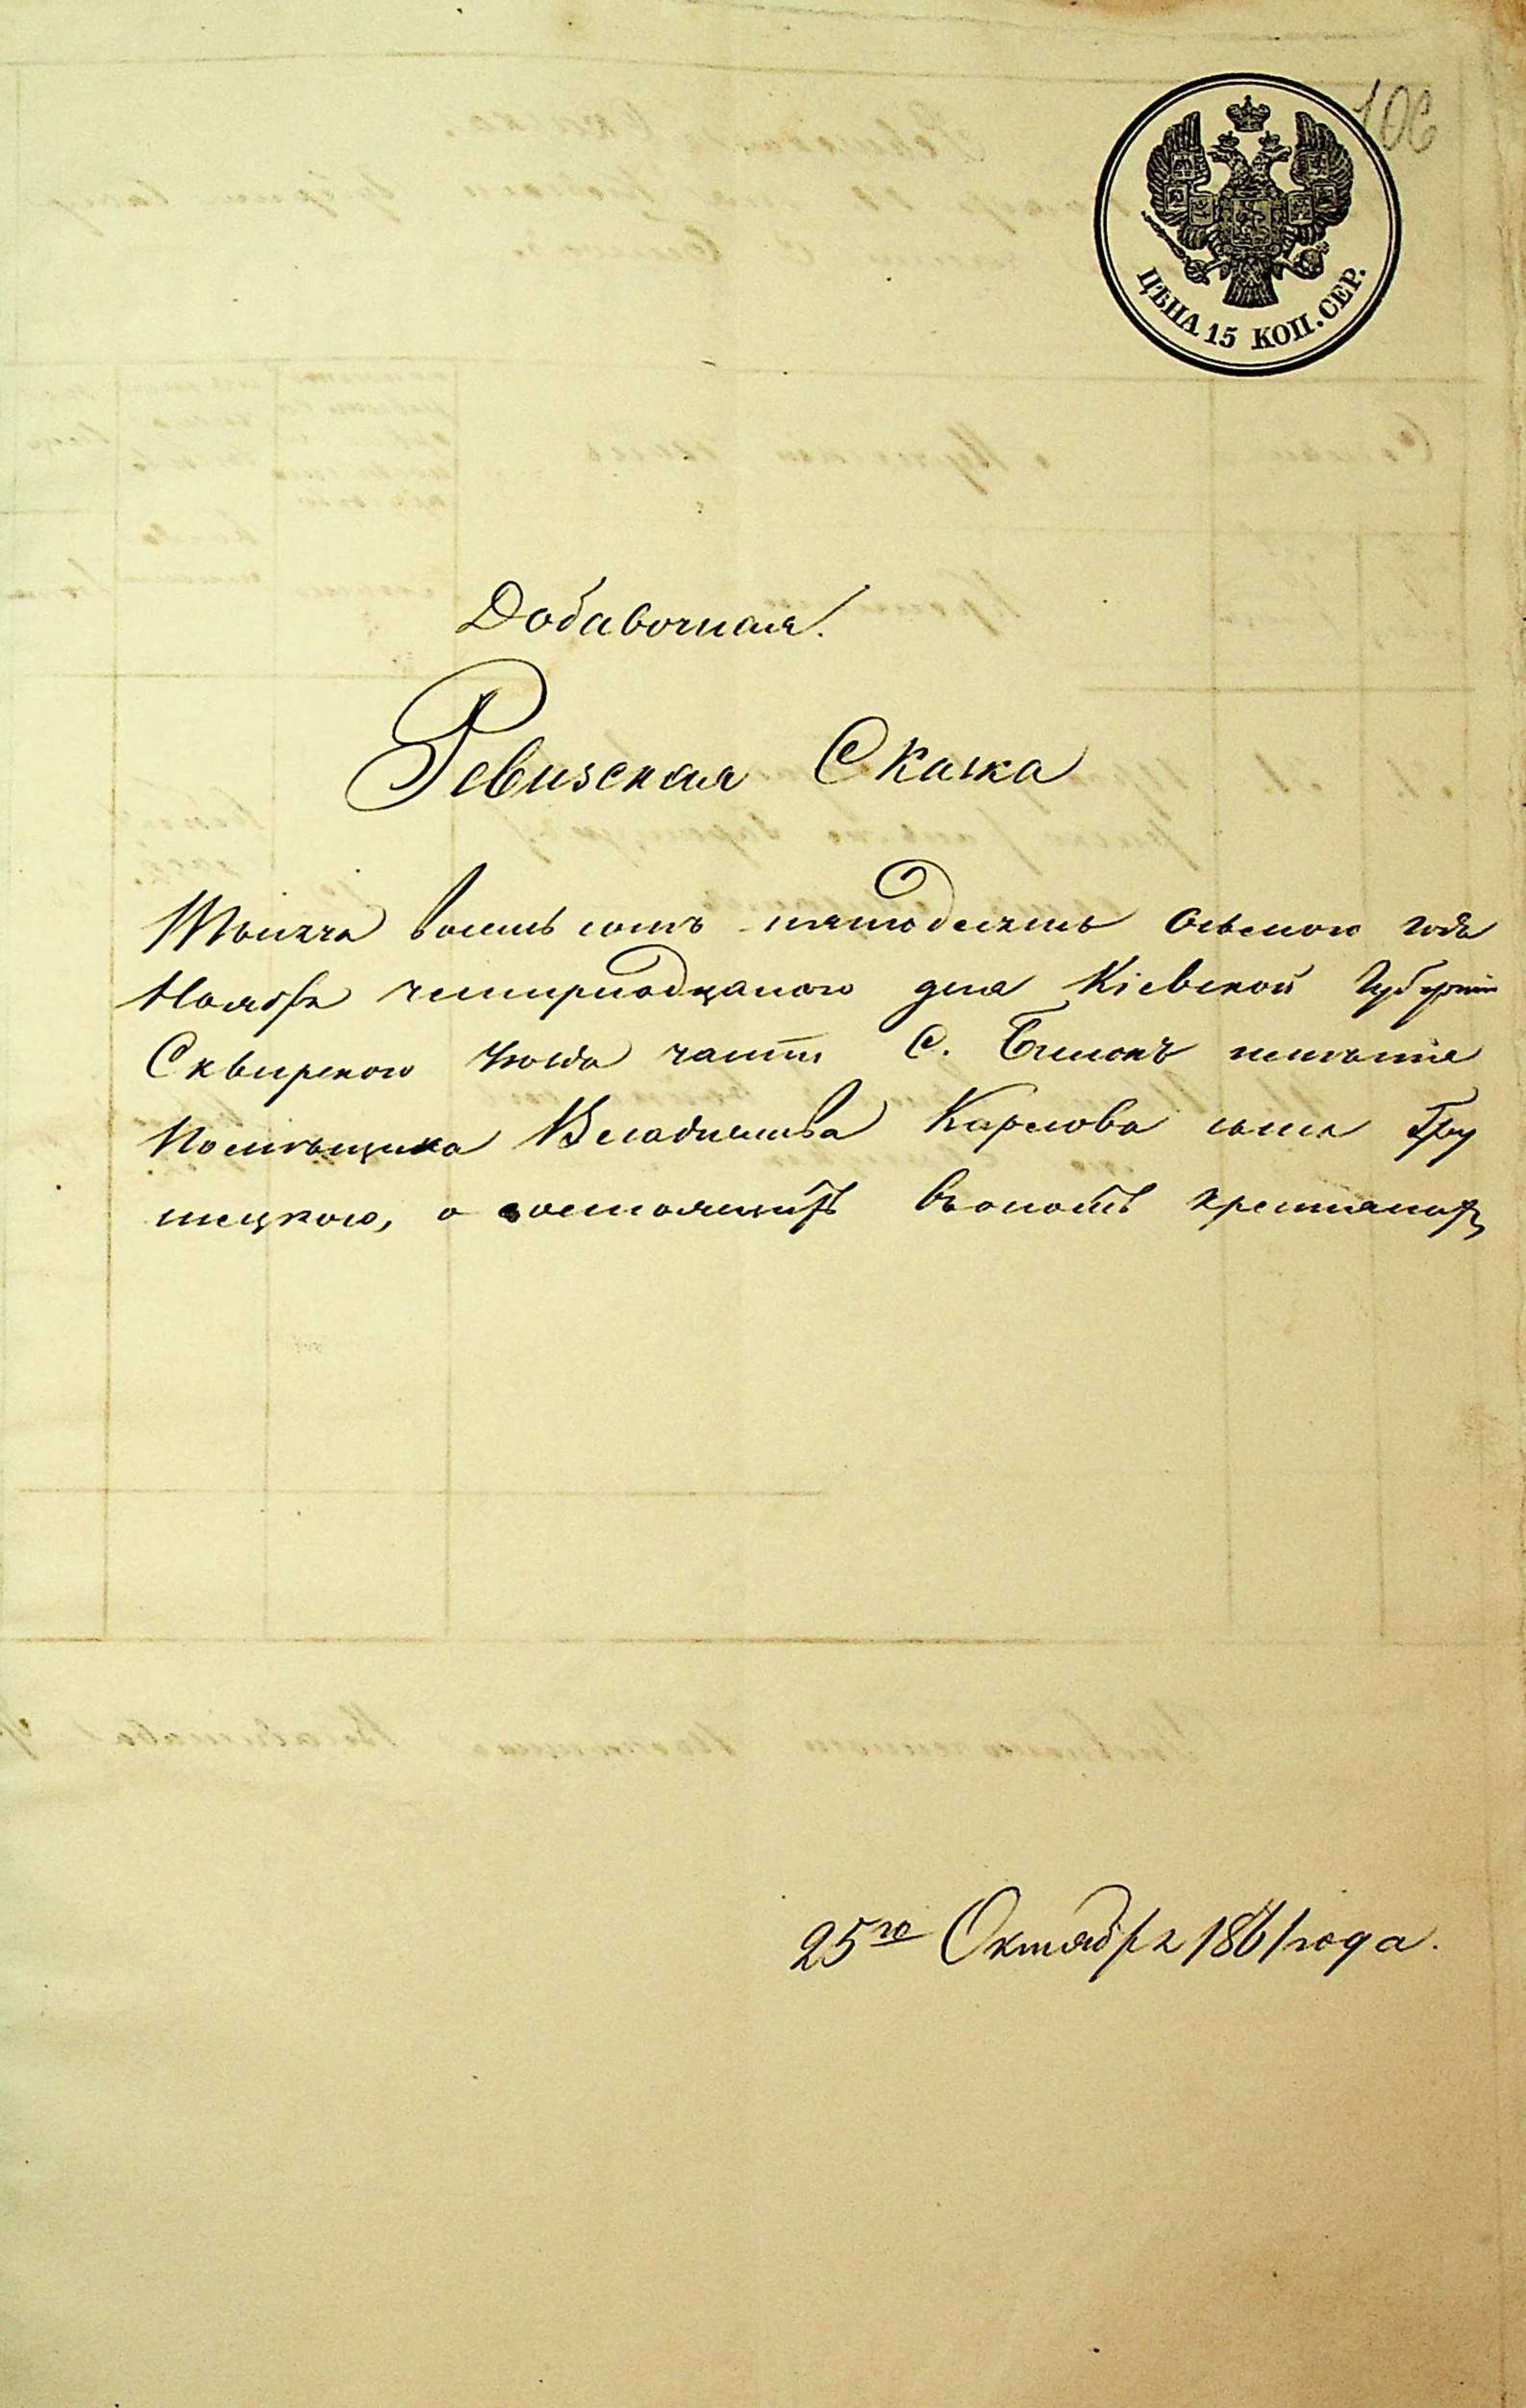 106
ЦѢНА 15 КОП. СЕР.
Добавочная.
Ревизская Сказка
Тысяча восемь сотъ пятьдесятъ осьмого года
Ноября четырнадцатого дня Кіевской Губерніи
Сквирского уѣзда части С. имѣнія
Помѣщика Владислава Карлова сына Гру
шецкого, о состоящихъ въ оной крестьянахъ
25го Октября 1861 года.